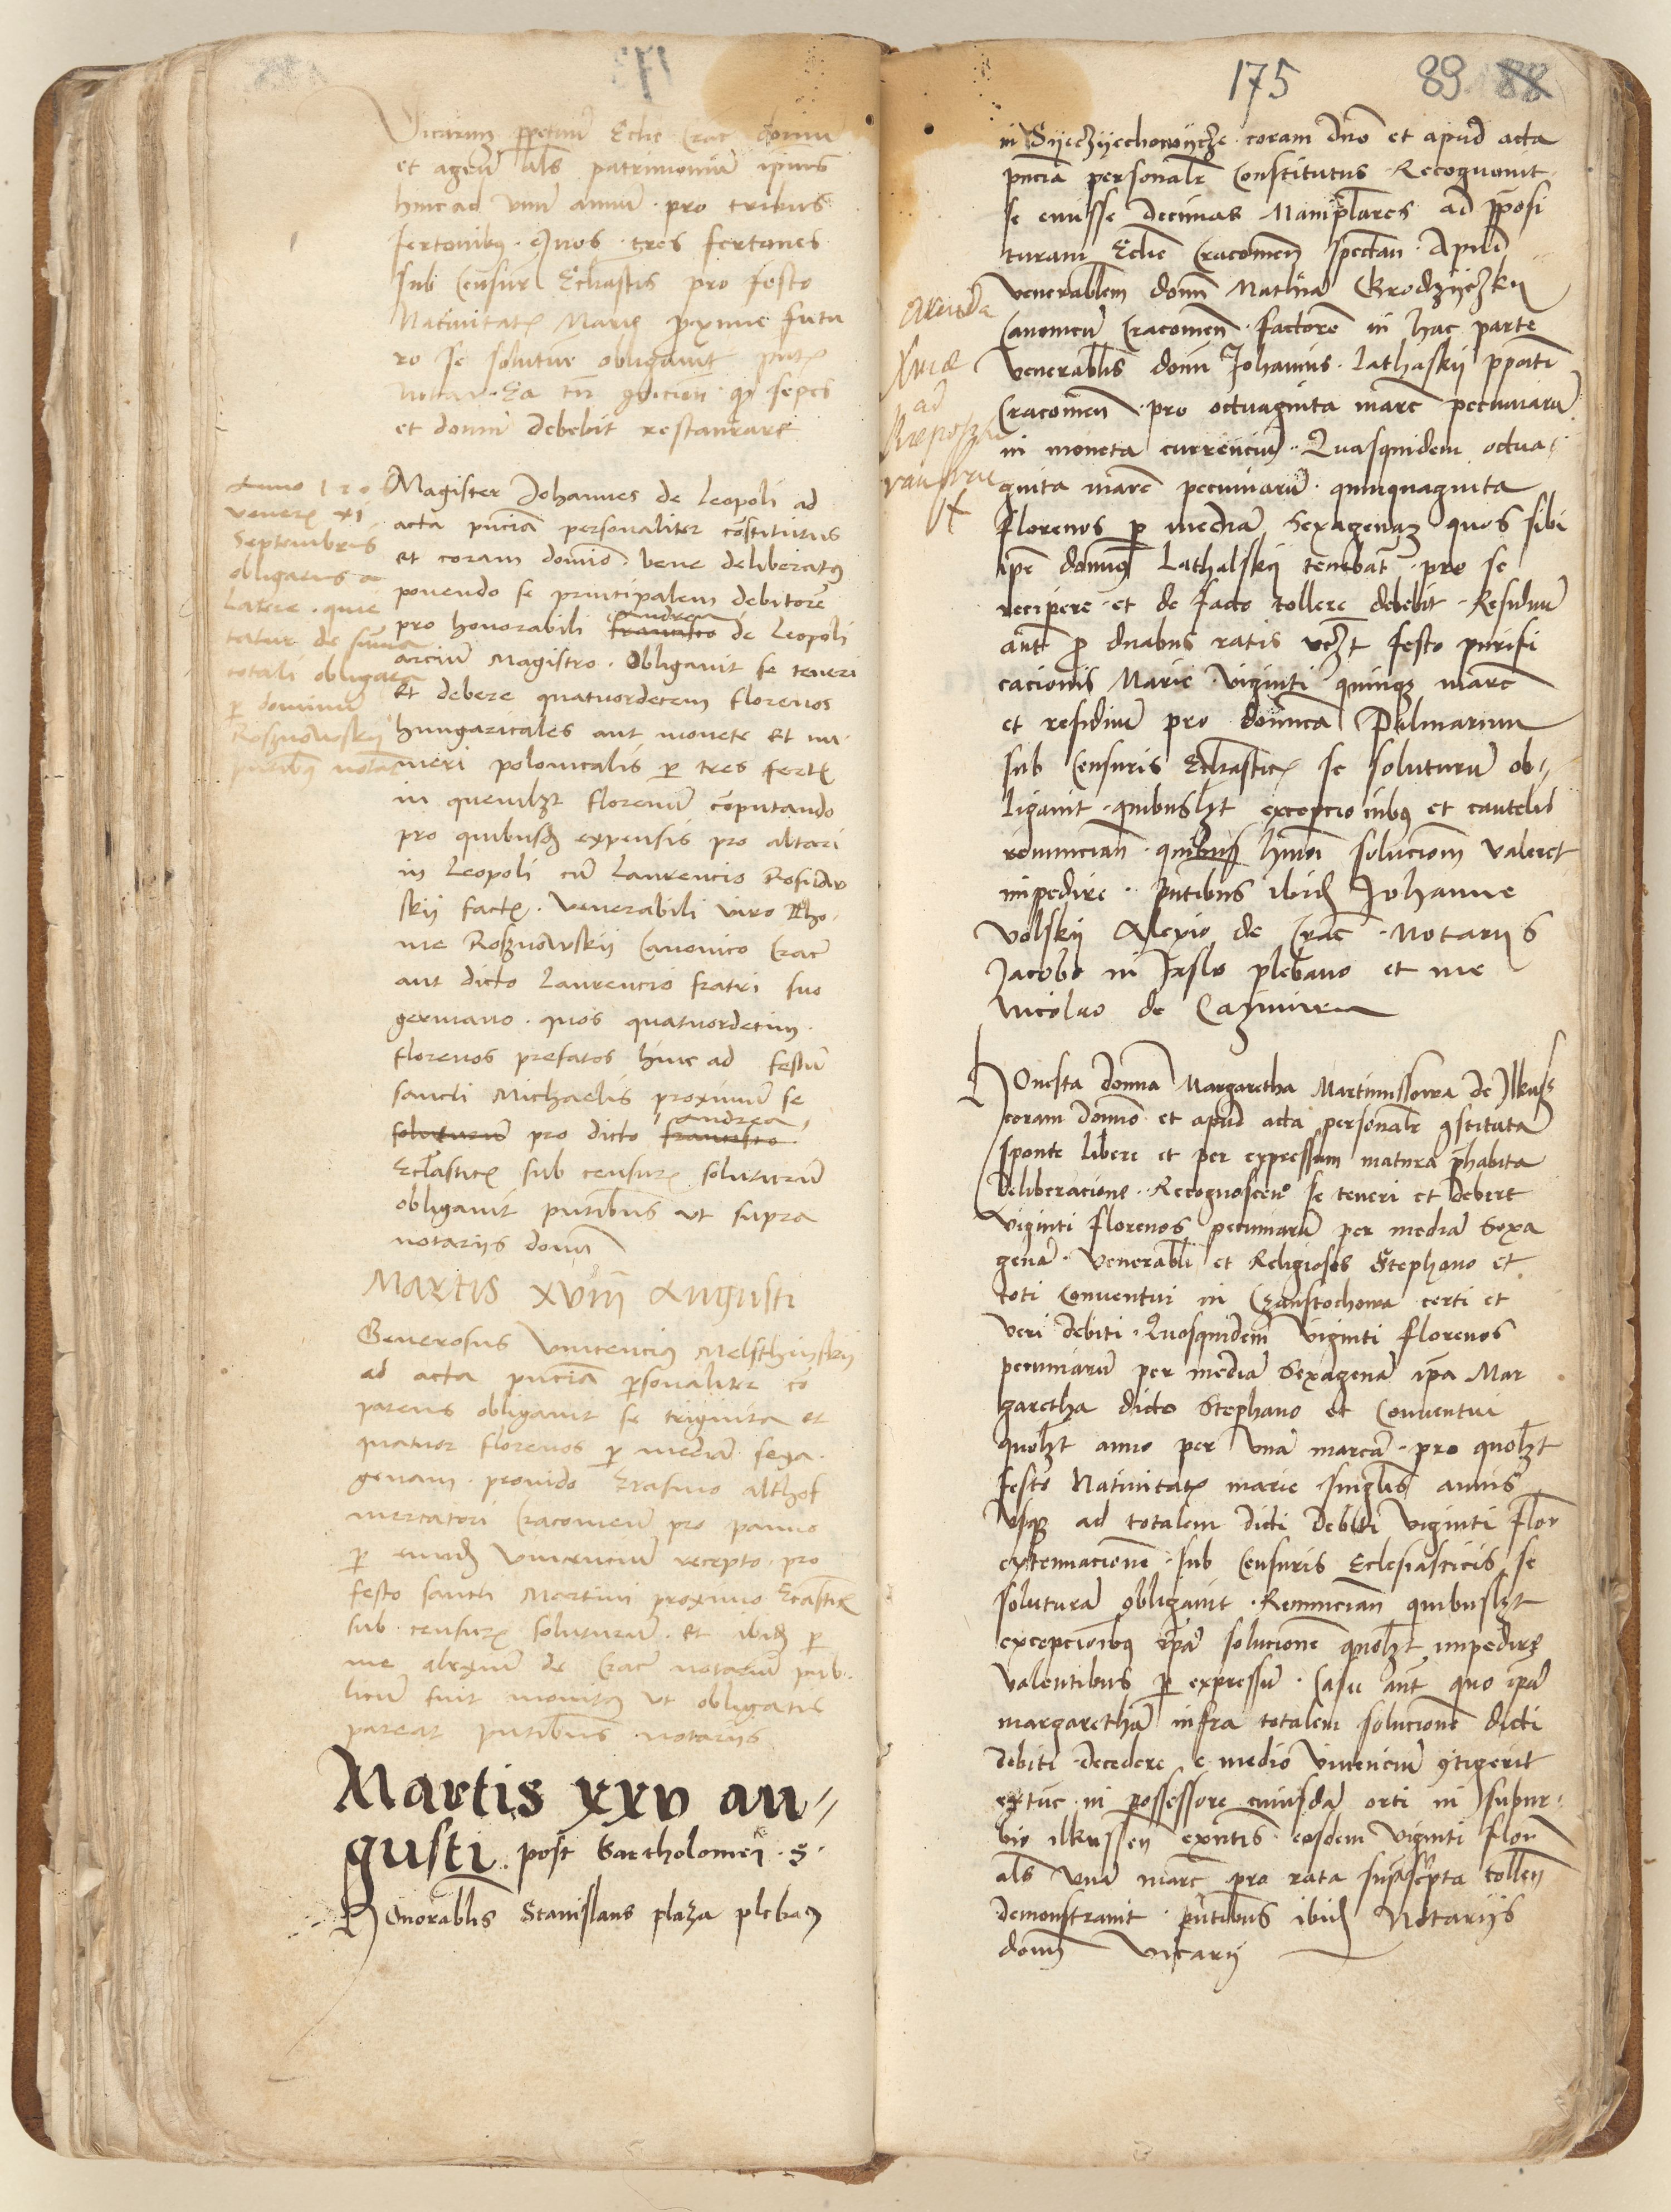 Vicarium ppetuu Eclie Crac domu
et agrum als patrimoniu ipius
hinc ad unu annu . pro tribus
fertonibus . Quos tres fertones
sub Censur Ecliasticis pro festo
Nativitatis Marie proxime futu
ro se soluturu obligavit
Notar . Ea tn condicion q sepes
et domu debebit restaurare
Anno
veneris xi
Septembris
obligatus a
latere . quie
tatur de suma
totali obligata
p dominu
Rosznowskij
pntibus notar
Magister Johannes de Leopoli ad
acta pncia personaliter constitutus
et coram domino . bene deliberatus
ponendo se principalem debitore
pro honorabili francisco Andrea de Leopoli
arciu Magistro . Obligavit se teneri
et debere quatuordecem florenos
hungaricales aut monete et nu
meri polonicalis p tres fert
in quemlzt florenu computando
pro quibusdam expensis pro altari
in Leopoli cu Laurencio Rosznow
skij fact . Venerabili viro Tho
me Rosznowskij Canonico Crac
aut dicto Laurencio fratri suo
germano . quos quatuordecim
florenos prefatos hinc ad festu
sancti Michaelis proximu se
soluturu pro dicto francisco Andrea
Ecliastic sub censur soluturu
obligavit pntibus ut supra
notariis domini
Martis XVIII Augusti
Generosus Vincencius Melsthinskij
ad acta pncia psonaliter co
parens obligavit se triginta et
quatuor florenos p media sexa
genam . provido Erasmo althof
mercatori Cracovien pro panno
p eundem Vincenciu recepto . pro
festo sancti Martini proximo Ecastic
sub censur soluturu . Et ibidem p
me alexiu de Crac notariu pub
licu fuit monitus ut obligatis
pareat pntibus notariis
Martis xxv au
gusti . post Bartholomei . S .
Honorablis Stanislaus plaza pleban
175 89 88
in Syeczyechowycze coram dno et apud acta
pncia personalr Constitutus . Recognovit
se emisse Decimas Maniplares ad pposi
turam Eclie Cracovien spectan . Apud
venerablem domn Mathia Grodzyczky
Canonicu Cracovien . factore in hac parte
venerablis domi Johannis . Lathalskij ppoiti
Cracovien . pro octuaginta marc pecuniaru
in moneta currenciu . Quasquidem octua
ginta marc pecuniaru . quinquaginta
florenos p media Sexagena quos sibi
ipe dominus Lathalskij tenebat pro se
recipere et de facto tollere debebit . Residuu
aut p duabus ratis vczt festo purifi
cacionis Marie . viginti quinque marc
et residuu pro dominica Palmarum
sub Censuris Ecliasticis se soluturu ob
ligavit . quibuslzt excepcionibus et cautelis
renuncian . quibus hmoi solucionem valeret
impedire . pntibus ibidem Johanne
Volskij Alexio de Crac . Notariis
Jacobo in Jaslo plebano et me
Nicolao de Cazimiria
Arenda
ad
Preposi
Honesta domna Margaretha Martinussowa de Ilkusz
coram domino et apud acta personalr constituta
sponte libere et per expressum matura phabita
Deliberacione . Recognoscen se teneri et debere
viginti florenos pecuniaru per media Sexa
gena . Venerabli et Religioso Stephano et
toti Conventui in Czanstochowa certi et
veri debiti . Quosquidem viginti florenos
pecuniaru per media Sexagena ipa Mar
garetha dicto Stephano et Conventui
quolzt anno per una marca . pro quolzt
festo Nativitatis marie singlis annis
Usque ad totalem dicti debiti viginti flor
extenuacione . sub Censuris Eclesiasticis se
solutura obligavit . Renuncian quibuslzt
excepcionibus ipa solucione quolzt impedire
valentibus p expressu . Casu aut quo ipa
margaretha infra totalem solucione dicti
debiti . decedere e medio vivenciu contigerit
extunc in possessore cuiusda orti in subur
bio ilkussen exntis . eosdem viginti flor
als una marc pro rata suprascripta tollen
demonstravit . pntibus ibidem Notariis
domini Vicarij